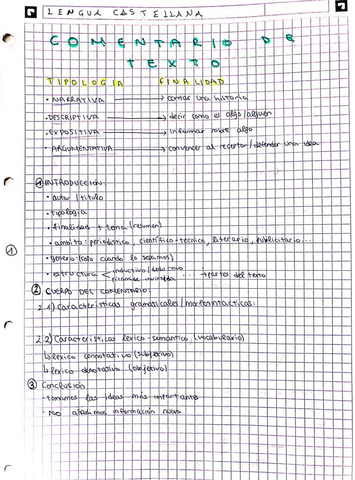 LENGUA CASTELLANA
COMENTARIO DE
TEXTO
TIPOLOGIA FINALIDAD
· NARRATIVA → contar una historia
· DESCRIPTIVA → decir como es algo/alguien
· EXPOSITIVA → informar sobre algo
· ARGUMENTATIVA → convencer al receptor/defender una idea
① INTRODUCCIÓN:
· autor/titulo
· tipologia
· finalidad + tema (resumen)
· ambito: periodístico, científico-técnico, literario, publicitario...
· genero (solo cuando lo sepamos)
· estructura < inductiva/deductiva
piramide invertida ... → partes del texto
1
② CUERPO DEL COMENTARIO:
2.1) Características gramaticales/morfosintacticas:
2.2) Características lexico-semantico (vocabulario)
↳ lexico connotativo (subjetivo)
↳ lexico denotativo (objetivo)
③ Conclusión
- tomamos las ideas más importante
- No añadimos información nueva